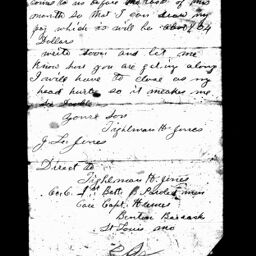 come to us before the last of this
month so that I can draw my
pay which it will be about 64
Dollars
write soon and let me
know how you are geting along
I will have to close as my
head hurts so it makes me
Yours Son
Tighlman H. Jones
J. L. Jones
Direct to
Tighlman H. Jones
Co. C. 1st Batt.
Care Capt.
Benton Barrack
St Louis Mo